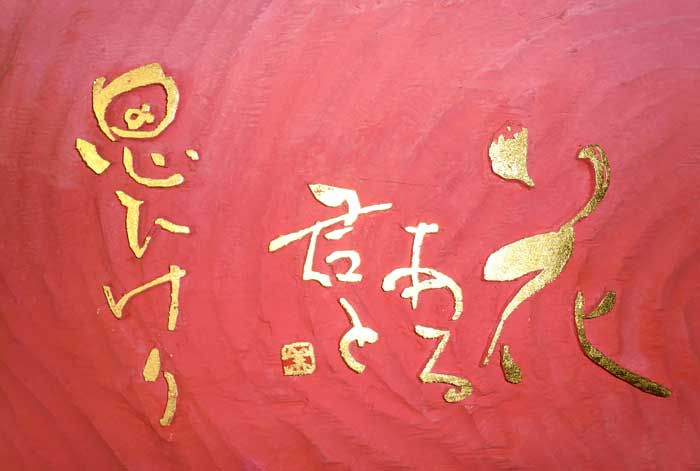 花
ある
君と
思ひけり